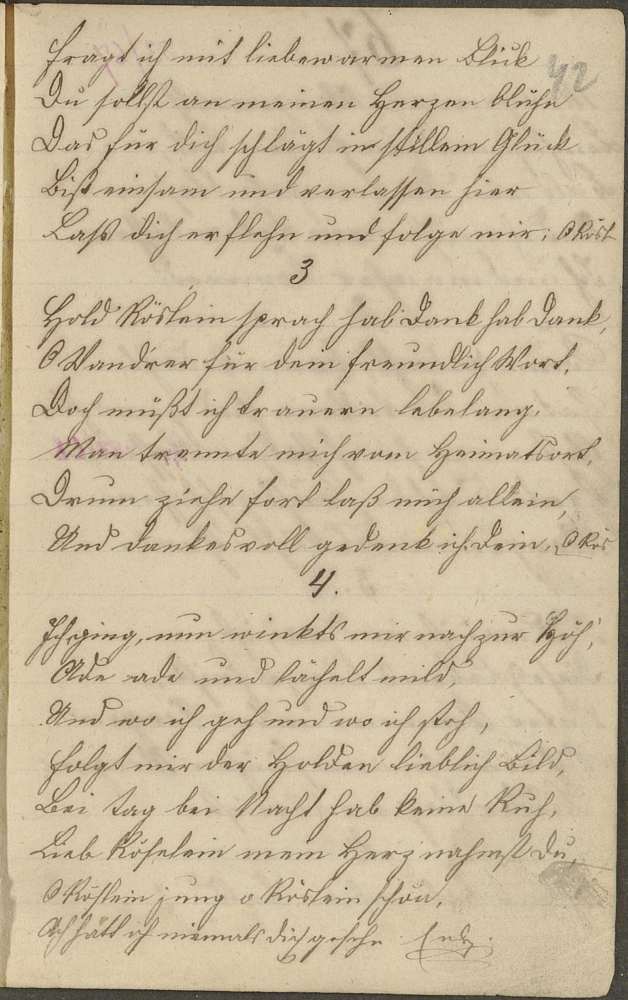 42
fragt ich mit liebewarmen Blick
Du sollst an meinen Herzen blühn
Das für dich schlägt in stillem Glück
Bist einsam und verlassen hier
Laß dich erflehn und folge mir; O Rösl
3
Hold Röslein sprach hab Dank hab Dank,
O Wandrer für dein freundlich Wort,
Doch müßt ich trauern lebelang,
Man trennte mich vom Heimatsort,
Drum ziehe fort laß mich allein,
Und dankesvoll gedenk ich dein, O Rös
4.
Ich ging, nun winkts mir nach zur Höh,
Ade ade und lächelt mild,
Und wo ich geh und wo ich steh,
folgt mir der Holden lieblich Bild,
Bei Tag bei Nacht hab keine Ruh,
Lieb Röselein mein Herz nahmst Du,
O Röslein jung o Röslein schön,
Ach hätt ich niemals dich gesehn Ende.